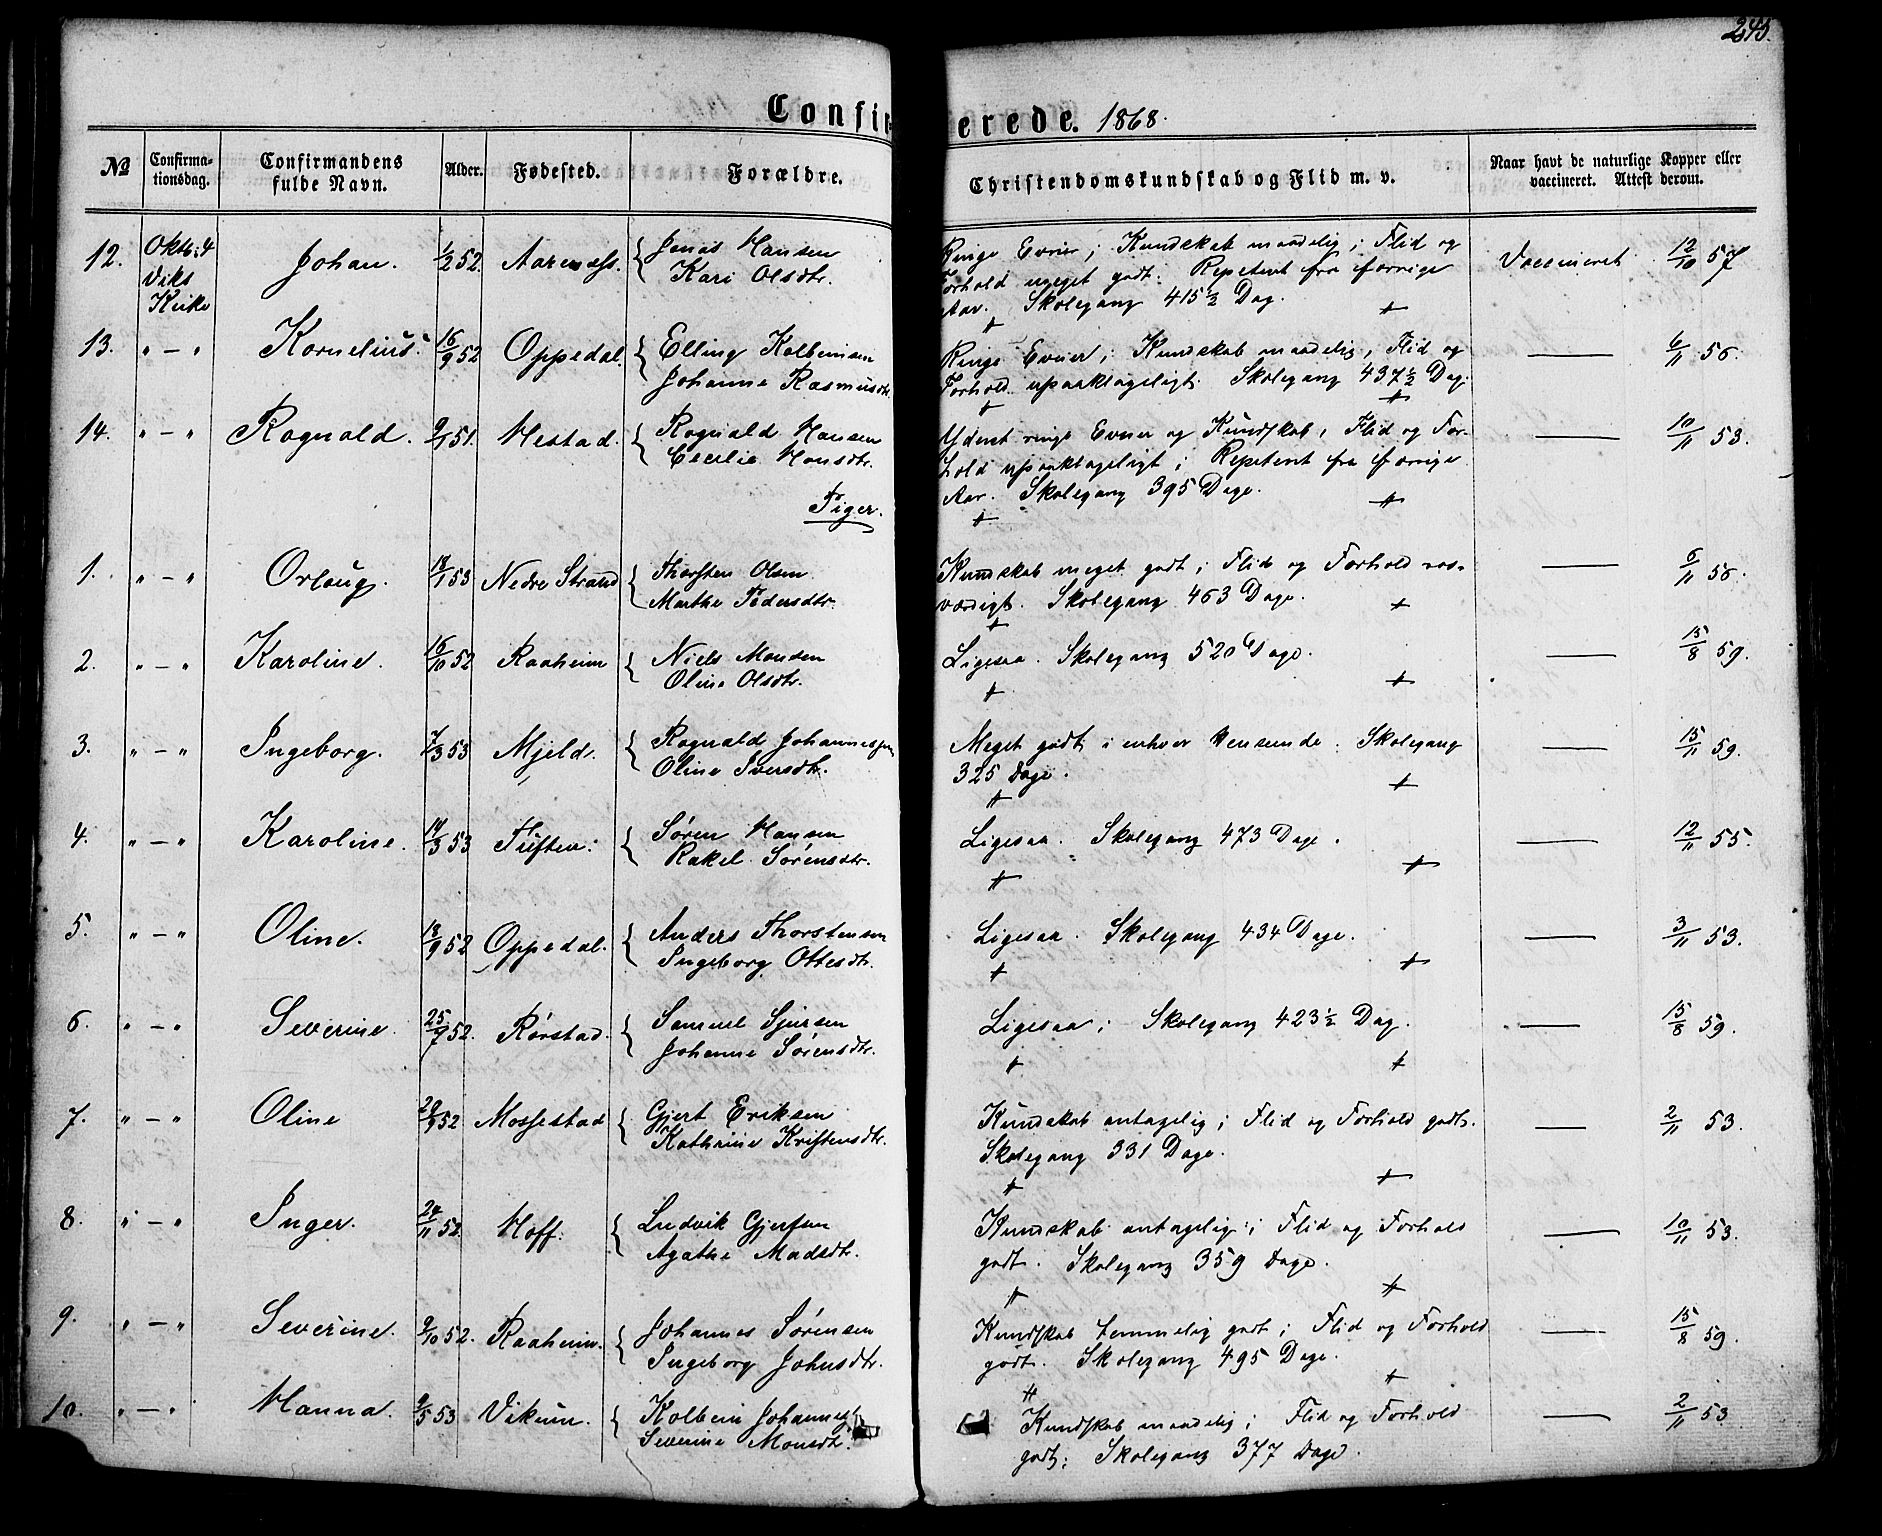 245.
Confirmerede. 1868.
No Confirmationsdag. Confirmandens fulde Navn. Alder. Fødested. Forældre. Christendomskundskab og Flid m. v. Naar havt de naturlige Kopper eller vaccineret. Attest derom.
12. Oktb. 4 Johan. 1/2 52. { Jonas Hansen Ringe Evner; Kundskab maadelig; Flid og Vaccineret 12/10 57
Viks Kari Olsdtr. Forhold meget godt. Repetent fra forrige
Kirke Aar. Skolegang 415 1/2 Dag.
13. " – " Kornelius. 16/9 52 Oppedal. { Elling Kolbeinsen Ringe Evner; Kundskab maadelig, Flid og — 6/11 56.
Johanne Rasmusdtr. Forhold upaaklageligt. Skolegang 437 1/2 Dag.
14. " – " Ragnald. 9/1 51. Hestad. { Ragnald Hansen Yderst ringe Evner og Kundskab, Flid og For- — 10/11 53.
Cecilie Hansdtr. hold upaaklageligt; Repetent fra forrige
Aar. Skolegang 395 Dage.
Piger.
1. " – " Orlaug. 18/1 53 Nedre Strand { Thorsten Olsen Kundskab meget godt; Flid og Forhold ros- — 6/11 56.
Marthe Pedersdtr. værdigt. Skolegang 463 Dage.
2. " – " Karoline. 16/10 52 Raaheim { Niels Monsen Ligesaa. Skolegang 520 Dage. — 15/8 59.
Oline Olsdtr.
3. " – " Ingeborg. 7/3 53 Mjeld. { Ragnald Johannessen Meget godt i enhver Henseende. Skolegang — 15/11 59.
Oline Iversdtr. 325 Dage.
4. " – " Karoline. 14/3 53 Tuften. { Søren Hansen Ligesaa. Skolegang 473 Dage. — 12/11 55.
Rakel Sørensdtr.
5. " – " Oline. 13/9 52 Oppedal. { Anders Thorstensen Ligesaa. Skolegang 434 Dage. — 3/11 53.
Ingeborg Ottesdtr.
6. " – " Severine. 25/7 52. Rørstad. { Samuel Sjursen Ligesaa; Skolegang 423 1/2 Dag. — 15/8 59.
Johanne Sørensdtr.
7. " – " Oline 52 Massestad { Gjert Eriksen Kundskab antagelig; Flid og Forhold godt. — 2/11 53.
Kathrine Kristensdtr. Skolegang 331 Dage.
8. " – " Inger. 24/11 52 Hoff. { Ludvik Gjertsen Kundskab antagelig; Flid og Forhold — 10/11 53.
Agathe Madsdtr. godt. Skolegang 359 Dage.
9. " – " Severine. 9/10 52. Raaheim. { Johannes Sørensen Kundskab temmelig godt; Flid og Forhold — 15/8 59.
Ingeborg Johnsdtr. godt. Skolegang 495 Dage.
10. " – " Hanna. 9/5 53 Vikum. { Kolbein Kundskab maadelig; Flid og Forhold — 2/11 53
Severine Monsdtr. godt; Skolegang 377 Dage.